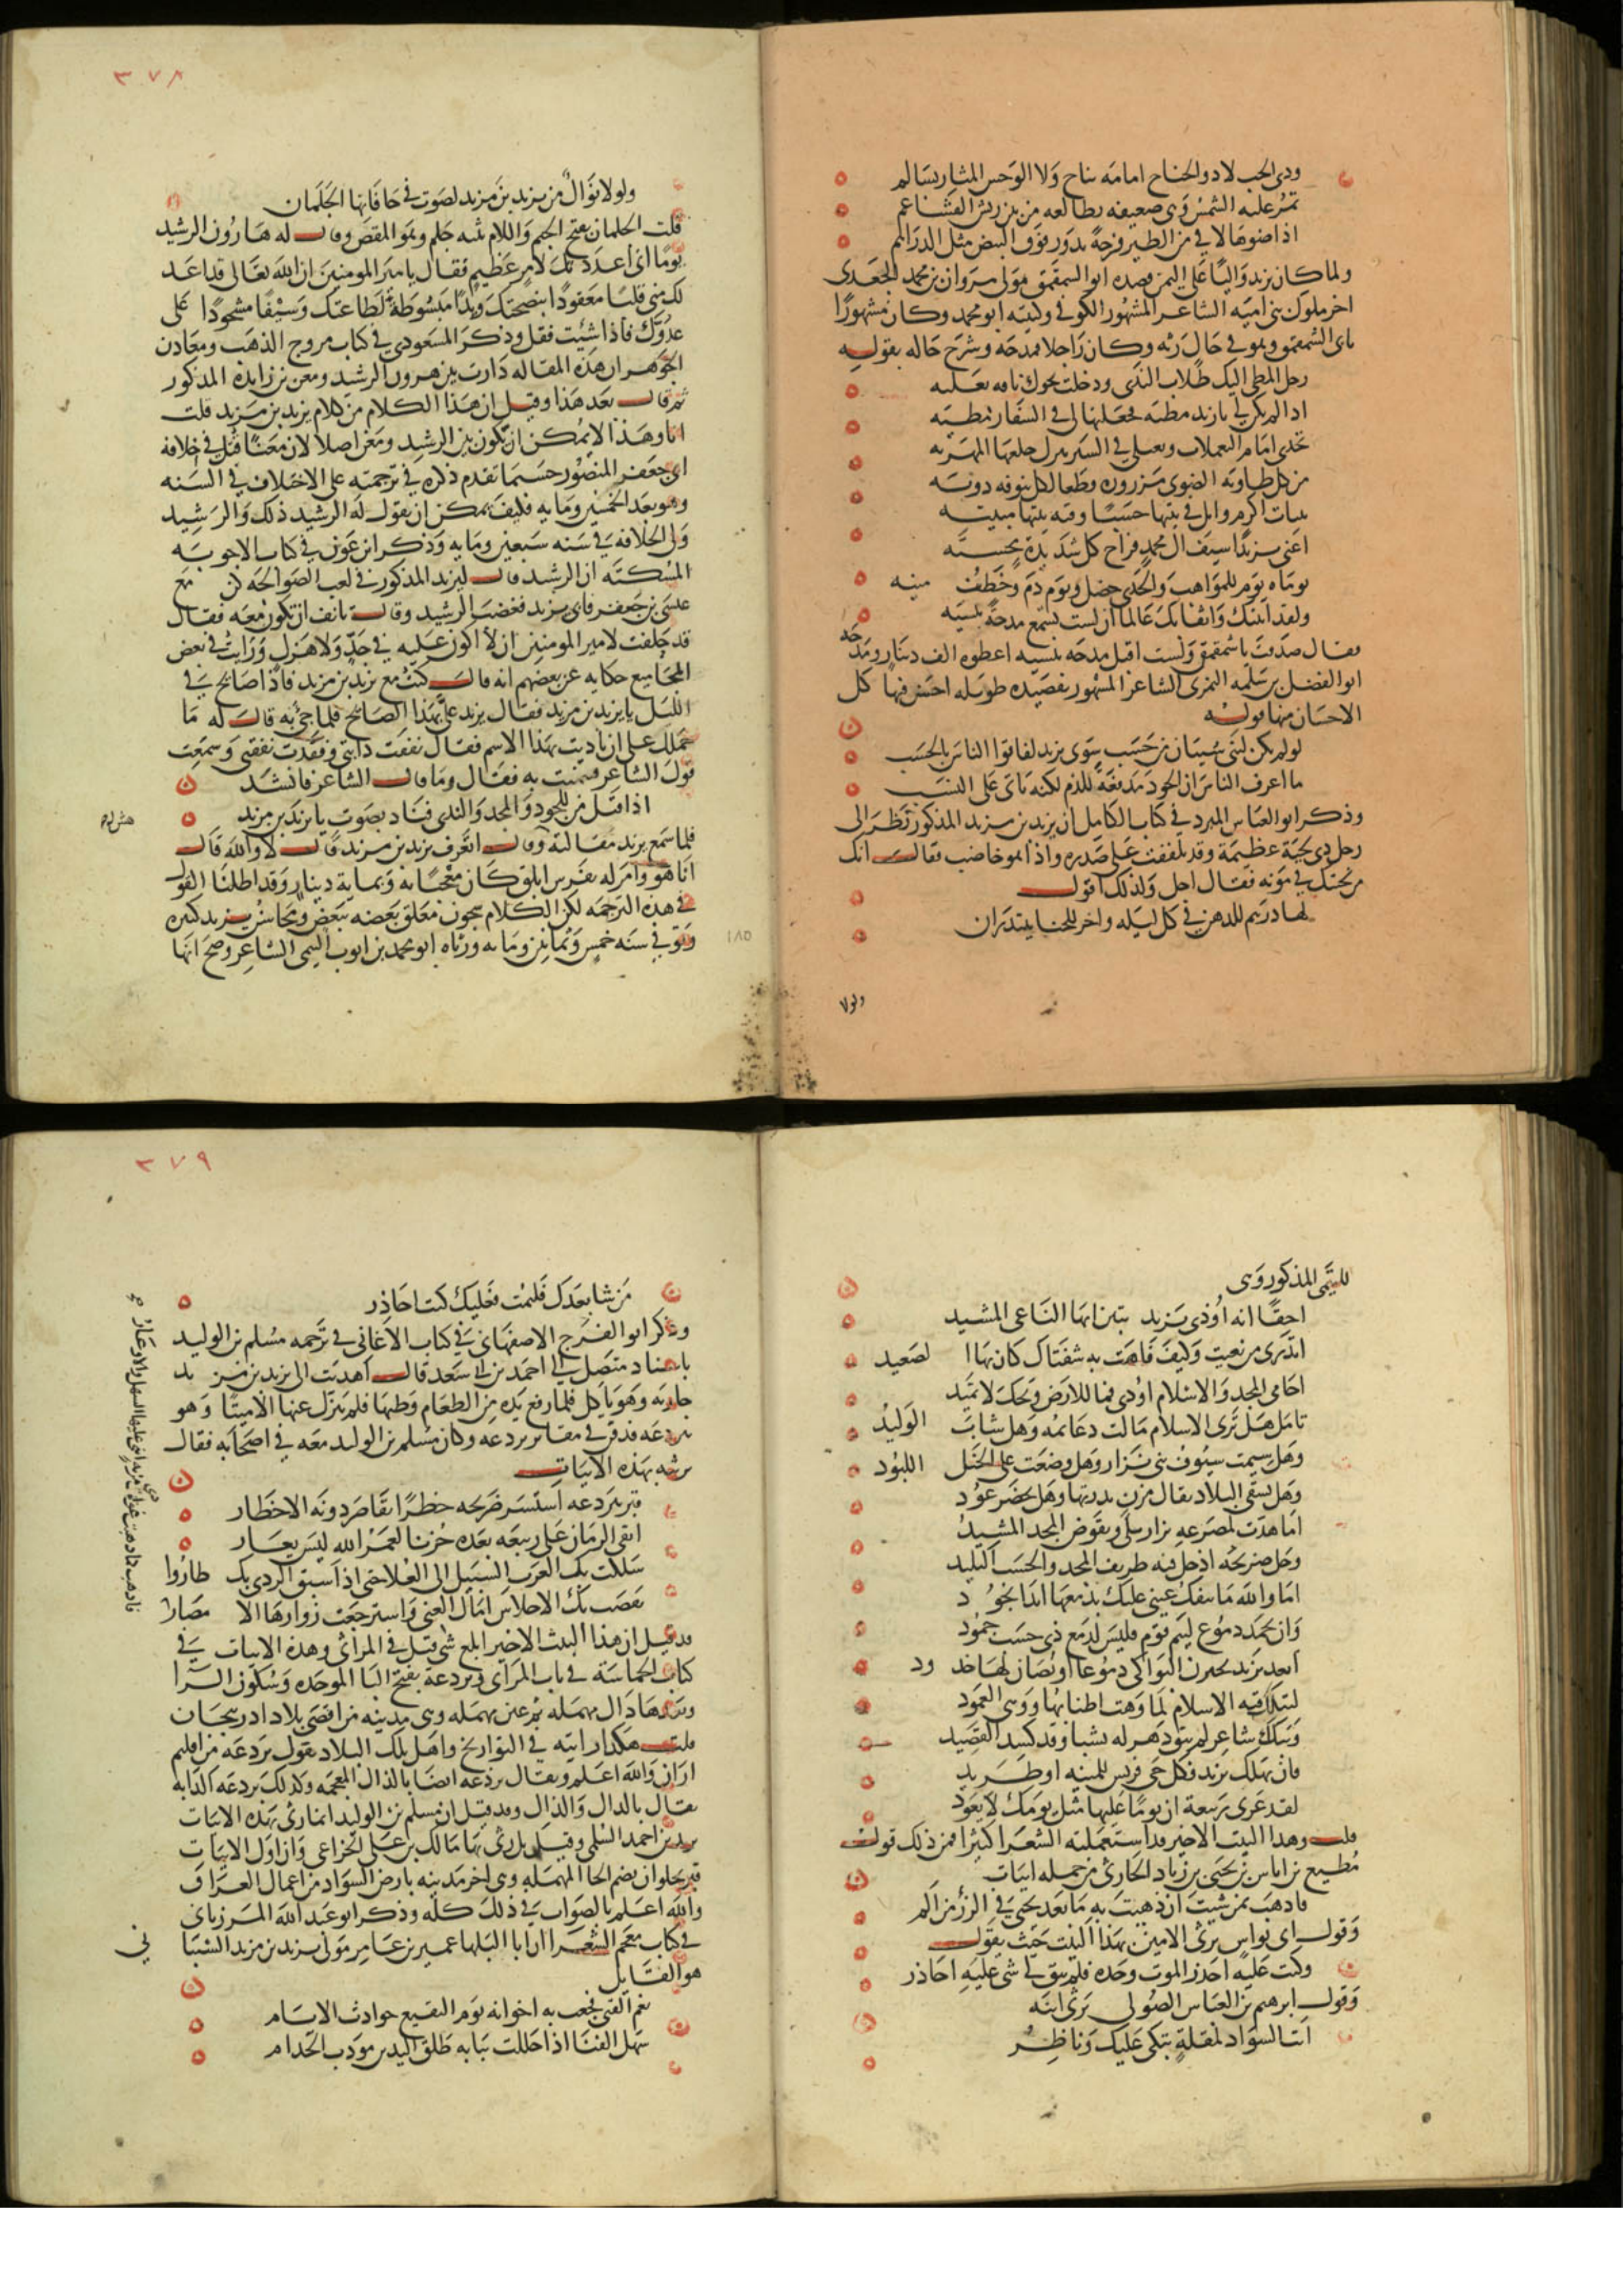 وذي لجب لا ذو الجناح امامه بناح ولا الوحش المثار بسالم
تمر عليه الشمس وهي ضعيفه تطالعه من بين ريش القشاعم
اذا ضوها لاقى من الطير فرجة تدور فوق البيض مثل الدراهم
ولما كان يزيد واليا على اليمن قصده ابو الشمقمق مولى مروان بن محمد الجعدي
اخر ملوك بني اميه الشاعر المشهور الكوفي وكنيته ابو محمد وكان مشهورا
بابي الشمقمق وهو في حال رثه وكان راجلا فمدحه وشرح حاله بقوله
رحل المطي اليك طلاب الندى ورحلت نحوك ناقه نعليه
اذا لم يكن لي يا يزيد مطيه فجعلتها لي في السفار مطيه
تخدي امام اليعملات وتغتلي في السير تترك خلفها المهريه
من كل طاويه الصوى مزوره قطعا لكل تنوفه دويه
تنتاب اكرم وايل في بيتها حسبا وقبه بيتها مبنيه
اعني يزيدا سيف ال محمد فراج كل شديدة مخشيه
يوماه يوم للمواهب والجدى خضل ويوم دم وخطف منيه
ولقد اتيتك واثقا بك عالما ان لست تسمع مدحة بنسيه
فقال صدقت يا شمقمق ولست اقبل مدحه بنسيه اعطوه الف دينار ومدحه
ابو الفضل بن سلمه النمري الشاعر المشهور بقصيده طويله احسن فيها كل
الاحسان منها قوله
لو لم يكن لبني شيبان من حسب سوى يزيد لفاقوا الناس بالحسب
ما اعرف الناس ان الجود مدفعة للذم لكنه ياتي على النشب
وذكر ابو العباس المبرد في كتاب الكامل ان يزيد بن مزيد المذكور نظر الى
رجل ذي لحية عظيمة وقد تلففت على صدره واذا هو خاضب فقال انك
من لحيتك في مؤنه فقال اجل ولذلك اقول
لها درهم للدهن في كل ليله واخر للحنا يبتدران
ولولا
٣٧٨
ولولا نوال من يزيد بن مزيد لصوت في حافاتها الجلمان
قلت الجلمان بفتح الجيم واللام تثنيه جلم وهو المقص وقال له هارون الرشيد
يوما اني اعددتك لامر عظيم فقال يا امير المومنين ان الله تعالى قد اعد
لك مني قلبا معقودا بنصيحتك ويدا مبسوطة لطاعتك وسيفا مشحوذا على
عدوك فاذا شيت فقل وذكر المسعودي في كتاب مروج الذهب ومعادن
الجوهر ان هذه المقاله دارت بين هرون الرشيد ومعن بن زايده المذكور
ثم قال بعد هذا وقيل ان هذا الكلام من كلام يزيد بن مزيد قلت
انا وهذا لا يمكن ان يكون بين الرشيد ومعن اصلا لان معنا قتل في خلافة
ابي جعفر المنصور حسبما تقدم ذكره في ترجمته على الاختلاف في السنه
وهو بعد الخمسين ومايه فكيف يمكن ان يقول له الرشيد ذلك والرشيد
ولي الخلافه في سنه سبعين ومايه وذكر ابن عون في كتاب الاجوبه
المسكته ان الرشيد قال ليزيد المذكور في لعب الصوالجه كن مع
عيسى بن جعفر فابى يزيد فغضب الرشيد وقال تانف ان تكون معه فقال
قد حلفت لامير المومنين ان لا اكون عليه في جد ولا هزل ورايت في بعض
المجاميع حكايه عن بعضهم انه قال كنت مع يزيد بن مزيد فاذا صايح في
الليل يا يزيد بن مزيد فقال يزيد علي بهذا الصايح فلما جي به قال له ما
حملك على ان ناديت بهذا الاسم فقال نفقت دابتي ونفدت نفقتي وسمعت
قول الشاعر فتمنيت به فقال وما قال الشاعر فانشد
اذا قيل من للجود والمجد والندى فناد بصوت يا يزيد بن مزيد
فلما سمع يزيد مقالته هش له وقال اتعرف يزيد بن مزيد قال لا والله قال
انا هو وامر له بفرس ابلق كان معجبا به وبمايه دينار وقد اطلنا القول
في هذه الترجمه لكن الكلام شجون معلق بعضه ببعض ومحاسن يزيد كثيره
وتوفي في سنه خمس وثمانين ومايه ورثاه ابو محمد بن ايوب التيمي الشاعر وصح انها
١٨٥
للتيمي المذكور وهي
احقا انه اودى يزيد تبين ايها الناعي المشيد
اتدري من نعيت وكيف فاهت به شفتاك كان بها الصعيد
احامي المجد والاسلام اودى فما للارض ويحك لا تميد
تامل هل ترى الاسلام مالت دعايمه وهل شاب الوليد
وهل شيمت سيوف بني نزار وهل وضعت على الخيل اللبود
وهل تسقي البلاد ثقال مزن بدرتها وهل يخضر عود
اما هدت لمصرعه نزار بلى وتقوض المجد المشيد
وحل ضريحه اذ حل فيه طريف المجد والحسب التليد
اما والله ما تنفك عيني عليك بدمعها ابدا تجود
وان تجمد دموع لئيم قوم فليس لدمع ذي حسب جمود
ابعد يزيد تختزن البواكي دموعا او تصان لها خدود
لتبكك قبه الاسلام لما وهت اطنابها ووهى العمود
ويبكك شاعر لم يبق دهر له نشبا وقد كسد القصيد
فان يهلك يزيد فكل حي فريس للمنيه او طريد
لقد عزى ربيعة ان يوما عليها مثل يومك لا يعود
قلت وهذا البيت الاخير قد استعملته الشعرا كثيرا فمن ذلك قول
مطيع بن اياس بن يحيى بن زياد الحارثي من جمله ابيات
فاذهب بمن شيت ان ذهبت به ما بعد يحيى في الرزء من الم
وقول ابي نواس يرثي الامين بهذا البيت حيث يقول
وكنت عليه احذر الموت وحده فلم يبق لي شي عليه احاذر
وقول ابرهيم بن العباس الصولي يرثي ابنه
انت السواد لمقلة تبكي عليك وناظر
٣٧٩
من شا بعدك فليمت فعليك كنت احاذر
وذكر ابو الفرج الاصفهاني في كتاب الاغاني في ترجمه مسلم بن الوليد
باسناد متصل الى احمد بن ابي سعد قال اهديت الى يزيد بن مزيد
جاريه وهو ياكل فلما رفع يده من الطعام وطيها فلم ينزل عنها الا ميتا وهو
ببردعه فدفن في مقابر بردعه وكان مسلم بن الوليد معه في اصحابه فقال
يرثيه بهذه الابيات
قبر ببردعه استسر ضريحه خطرا تقاصر دونه الاخطار
ابقى الزمان على ربيعه بعده حزنا لعمر الله ليس يعار
سلكت بك العرب السبيل الى العلا حتى اذا سبق الردى بك طاروا
نفضت بك الاحلاس امال الغنى واسترجعت زوارها الامصار
فاذهب كما ذهبت غوادي مزنة اثنى عليها السهل والاوعار صح
قد قيل ان هذا البيت الاخير ابلغ شي قيل في المراثي وهذه الابيات في
كتاب الحماسة في باب المراثي وبردعة بفتح البا الموحده وسكون الرا
وبعدها دال مهمله ثم عين مهمله وهي مدينه من اقصى بلاد اذربيجان
قلت هكذا رايته في التواريخ واهل تلك البلاد يقول بردعة من اقليم
اران والله اعلم ويقال برذعه ايضا بالذال المعجمه وكذلك بردعة الدابه
يقال بالدال والذال وقد قيل ان مسلم بن الوليد انما رثى بهذه الابيات
يزيد بن احمد السلمي وقيل بل رثى بها مالك بن علي الخزاعي وان اول الابيات
قبر بحلوان بضم الحا المهمله وهي اخر مدينه بارض السواد من اعمال العراق
والله اعلم بالصواب في ذلك كله وذكر ابو عبد الله المرزباني
في كتاب معجم الشعرا ان ابا البلها عمير بن عامر مولى يزيد بن مزيد الشيباني
هو القايل
نعم الفتى فجعت به اخوانه يوم البقيع حوادث الايام
سهل الفنا اذا حللت ببابه طلق اليدين مودب الخدام